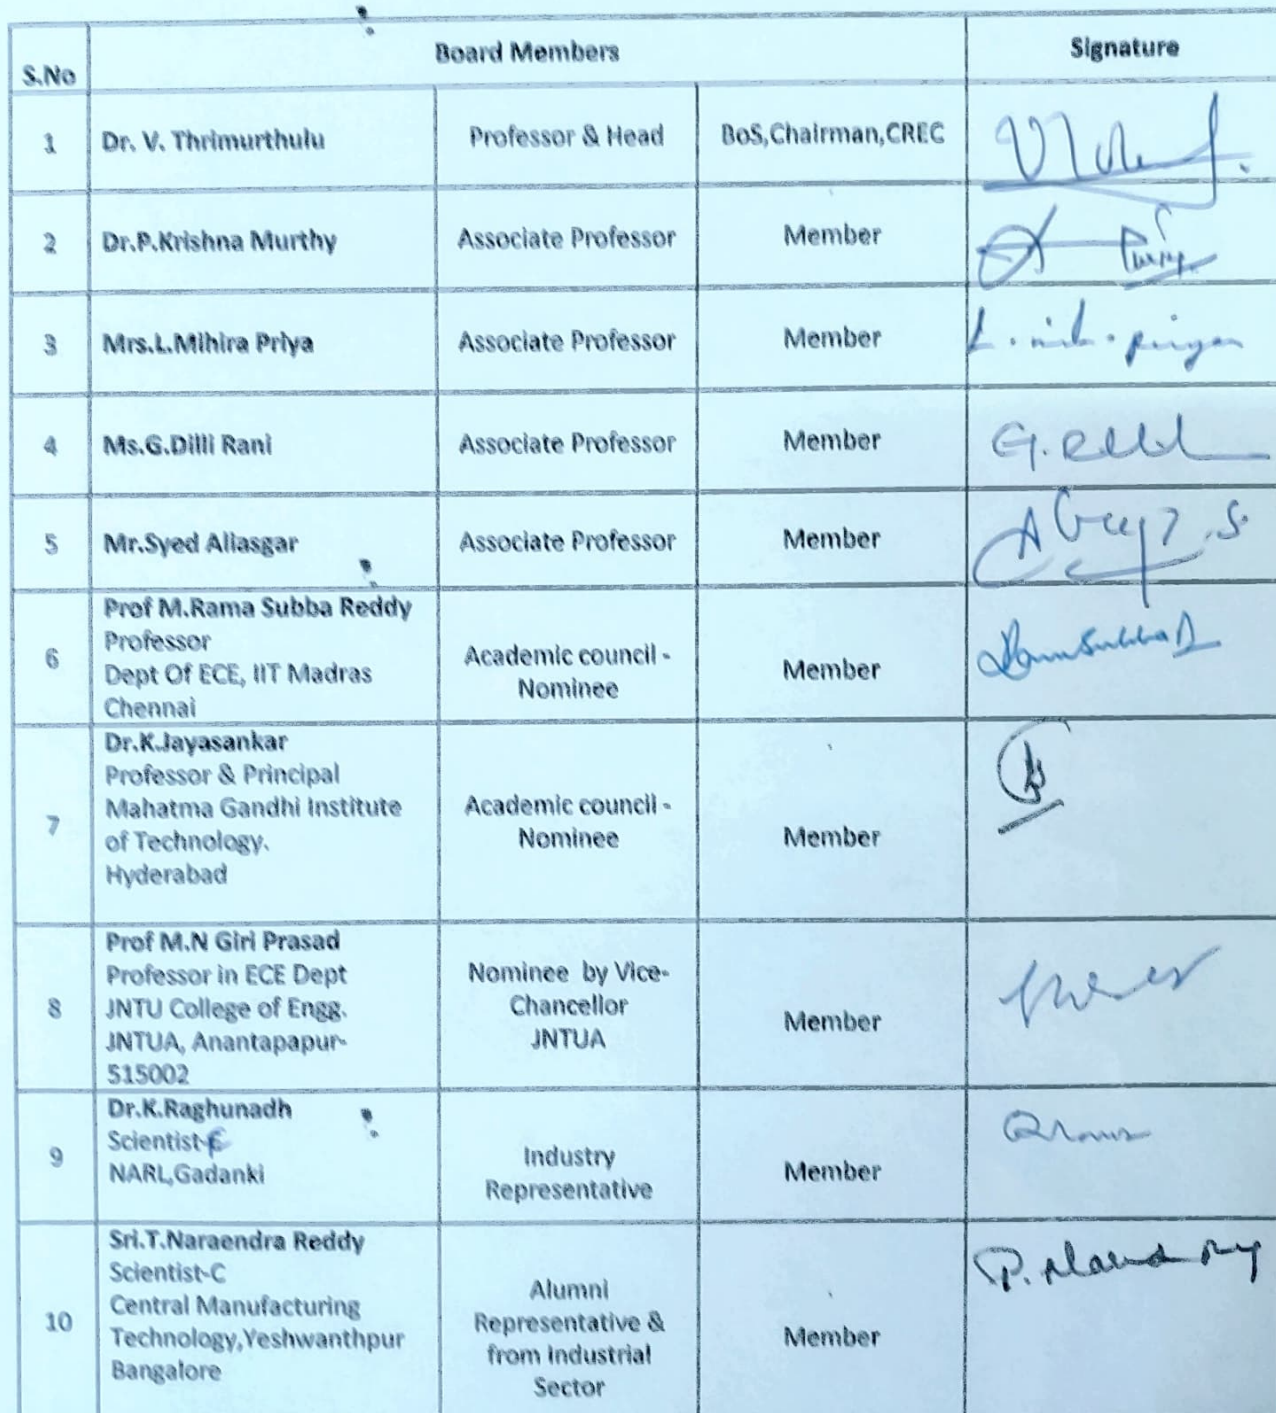 S.No
Board Members
Signature
1
Dr. V. Thrimurthulu
Professor & Head
BoS,Chairman,CREC
2
Dr.P.Krishna Murthy
Associate Professor
Member
3
Mrs.L.Mihira Priya
Associate Professor
Member
4
Ms.G.Dilli Rani
Associate Professor
Member
5
Mr.Syed Aliasgar
Associate Professor
Member
6
Prof M.Rama Subba Reddy
Professor
Dept Of ECE, IIT Madras
Chennai
Academic council -
Nominee
Member
7
Dr.K.Jayasankar
Professor & Principal
Mahatma Gandhi Institute
of Technology.
Hyderabad
Academic council -
Nominee
Member
8
Prof M.N Giri Prasad
Professor in ECE Dept
JNTU College of Engg.
JNTUA, Anantapapur-
515002
Nominee by Vice-
Chancellor
JNTUA
Member
9
Dr.K.Raghunadh
NARL,Gadanki
Industry
Representative
Member
10
Sri.T.Naraendra Reddy
Scientist-C
Central Manufacturing
Technology,Yeshwanthpur
Bangalore
Alumni
Representative &
from Industrial
Sector
Member